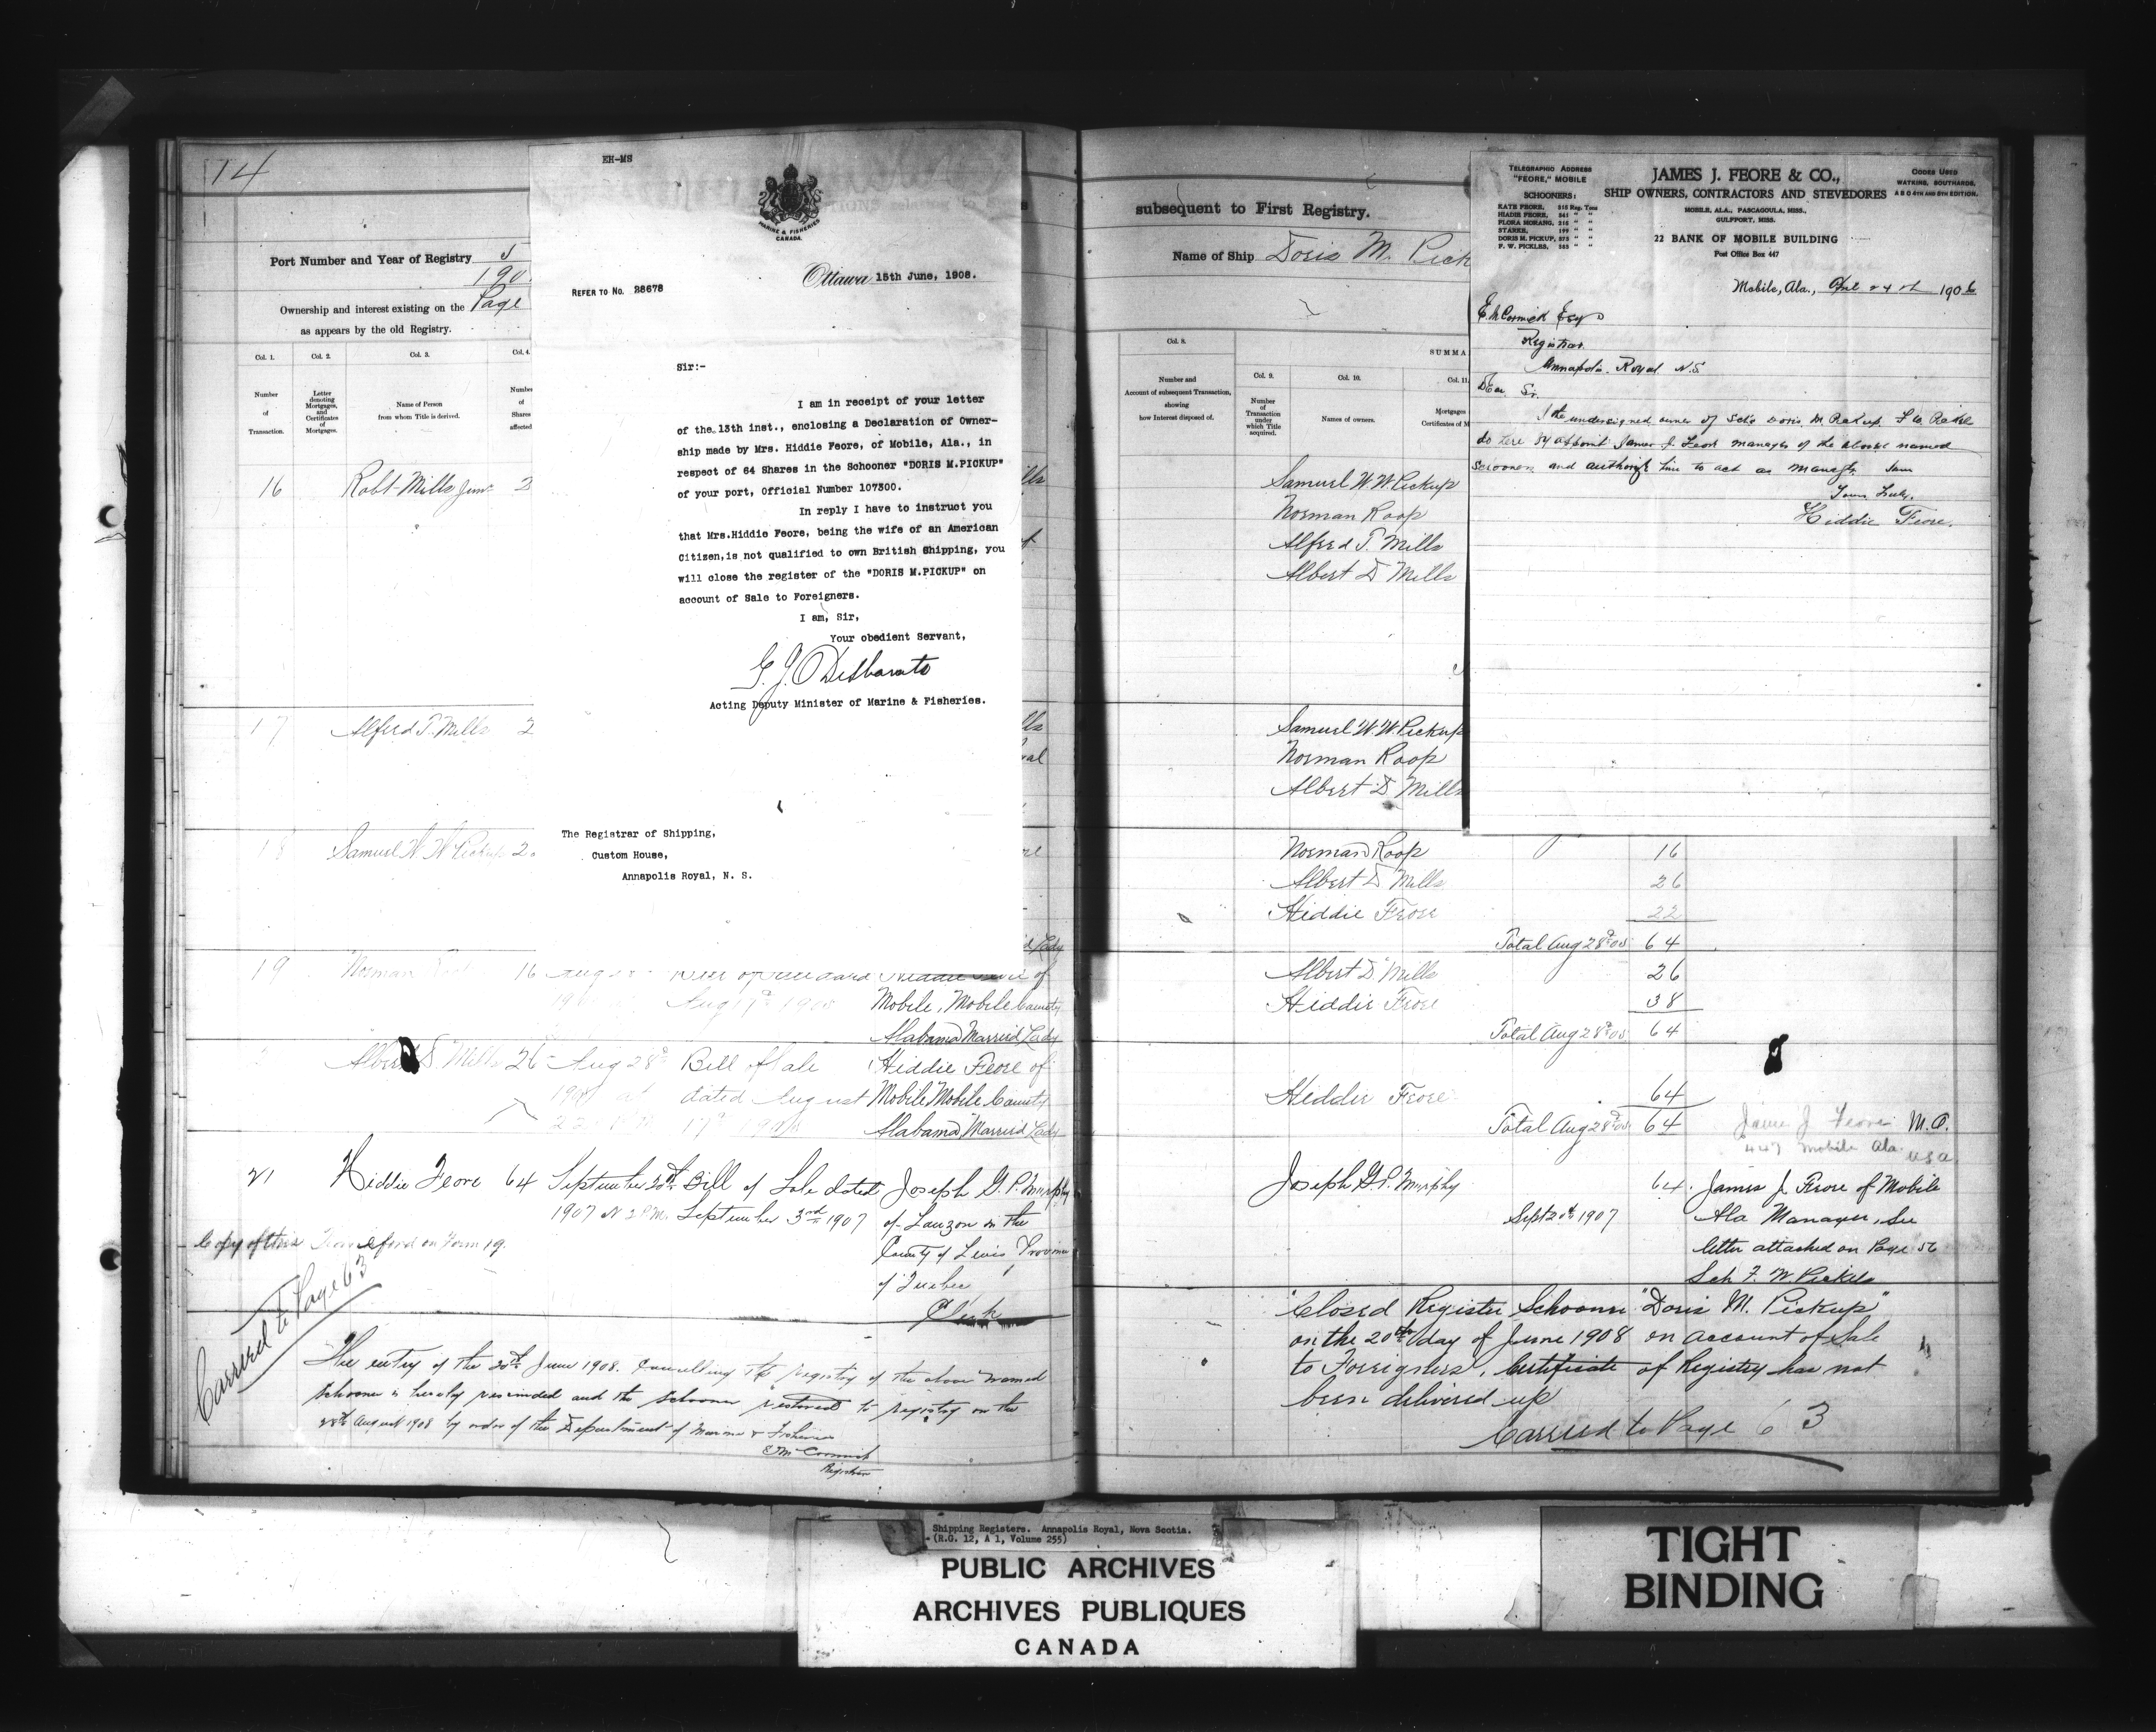 14
Port Number and Year of Registry
190
Ownership and interest existing on the Page
as appears by the old Registry.
Col. 1.
Col. 2.
Col. 3.
Col. 4.
Number
of
Transaction.
Letter
denoting
Mortgages,
and
Certificates
of
Mortgages.
Name of Person
from whom Title is derived.
Number
of
Shares
affected
16 Robt. Mills Junr 2
17 Alfred T. Mills 2
18 Samuel W W Pickup 2
19 Norman 16 Aug
Aug 17th
Mobile, Mobile County
Alabama Married Lady
Albert D. Mills 26 Aug 28th Bill of Sale Hiddie Feore of
dated August Mobile Mobile County
Alabama Married Lady
21 Hiddie Feore 64 September 20th Bill of Sale dated Joseph G. P. Murphy
1907 at 2 P.M. September 3rd 1907 of Lauzon in the
County of Levis Province
of Quebec
Clerk
Copy of this on Form 19.
Carried to Page 63
The entry of the 20th June 1908. Cancelling the registry of the above named
Schooner is hereby rescinded and the schooner restored to registry on the
28th August 1908 by order of the Department of Marine & Fisheries
E McCormick
Registrar
EH-MS
MARINE & FISHERIES
CANADA.
Ottawa 15th June, 1908.
REFER TO No. 28678
Sir:-
I am in receipt of your letter
of the 13th inst., enclosing a Declaration of Owner-
ship made by Mrs. Hiddie Feore, of Mobile, Ala., in
respect of 64 Shares in the Schooner "DORIS M.PICKUP"
of your port, Official Number 107300.
In reply I have to instruct you
that Mrs.Hiddie Feore, being the wife of an American
Citizen,is not qualified to own British Shipping, you
will close the register of the "DORIS M.PICKUP" on
account of Sale to Foreigners.
I am, Sir,
Your obedient Servant,
G. J. Desbarats
Acting Deputy Minister of Marine & Fisheries.
The Registrar of Shipping,
Custom House,
Annapolis Royal, N. S.
subsequent to First Registry.
Name of Ship Doris M. Pick
Col. 8.
Number and
Account of subsequent Transaction,
showing
how Interest disposed of.
SUMMA
Col. 9.
Col. 10.
Col. 11.
Number
of
Transaction
under
which Title
acquired.
Names of owners.
Mortgages
Certificates of M
Samuel W. W. Pickup
Norman Roop
Alfred T. Mills
Albert D Mills
Samuel W. W. Pickup
Norman Roop
Albert D Mills
Norman Roop 16
Albert D Mills 26
Hiddie Feore 22
Total Aug 28th 05 64
Albert D Mills 26
Hiddie Feore 38
Total Aug 28th 05 64
Hiddie Feore 64
Total Aug 28th 05 64
James J Feore M.O.
447 Mobile Ala. U.S.A
Joseph G. P. Murphy 64. James J. Feore of Mobile
Sept 20th 1907 Ala Manager, See
letter attached on Page 56
Sch F. W. Pickels
"Closed Register Schooner "Doris M. Pickup"
on the 20th day of June 1908 on account of Sale
to Foreigners, Certificate of Registry has not
been delivered up
Carried to Page 63
TELEGRAPHIC ADDRESS
"FEORE," MOBILE
SCHOONERS:
KATE FEORE, 315 Reg. Tons
HIADIE FEORE, 341 " "
FLORA MORANG, 316 " "
STARKE, 199 " "
DORIS M. PICKUP, 373 " "
F. W. PICKLES, 385 " "
JAMES J. FEORE & CO.,
SHIP OWNERS, CONTRACTORS AND STEVEDORES
MOBILE, ALA., PASCAGOULA, MISS.,
GULFPORT, MISS.
22 BANK OF MOBILE BUILDING
Post Office Box 447
CODES USED
WATKINS, SOUTHARDS,
A B C 4TH AND 5TH EDITION.
Mobile, Ala., 24th 1906
E. McCormick Esq
Registrar
Annapolis. Royal N.S.
Dear Sir.
I the undersigned owner of Sch's Doris M Pickup, F W. Pickle
do here by appoint James J. Feore manager of the above named
schooners and authorize him to act as manager.
Yours Truly,
Hiddie Feore.
Shipping Registers. Annapolis Royal, Nova Scotia.
(R.G. 12, A 1, Volume 255)
PUBLIC ARCHIVES
ARCHIVES PUBLIQUES
CANADA
TIGHT
BINDING